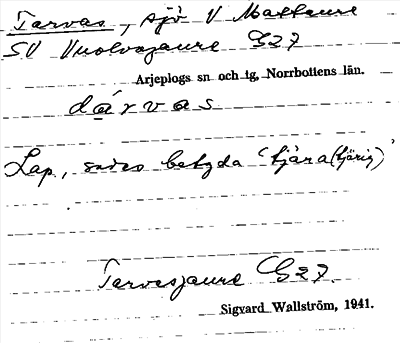 Tarvas, sjö V Mattaure
SV Vuolvojaure G27
Arjeplogs sn och tg, Norrbottens län.
dárvas
Lap., sades betyda 'tjära (tjärig)'
Tarvesjaure G27.
Sigvard Wallström, 1941.